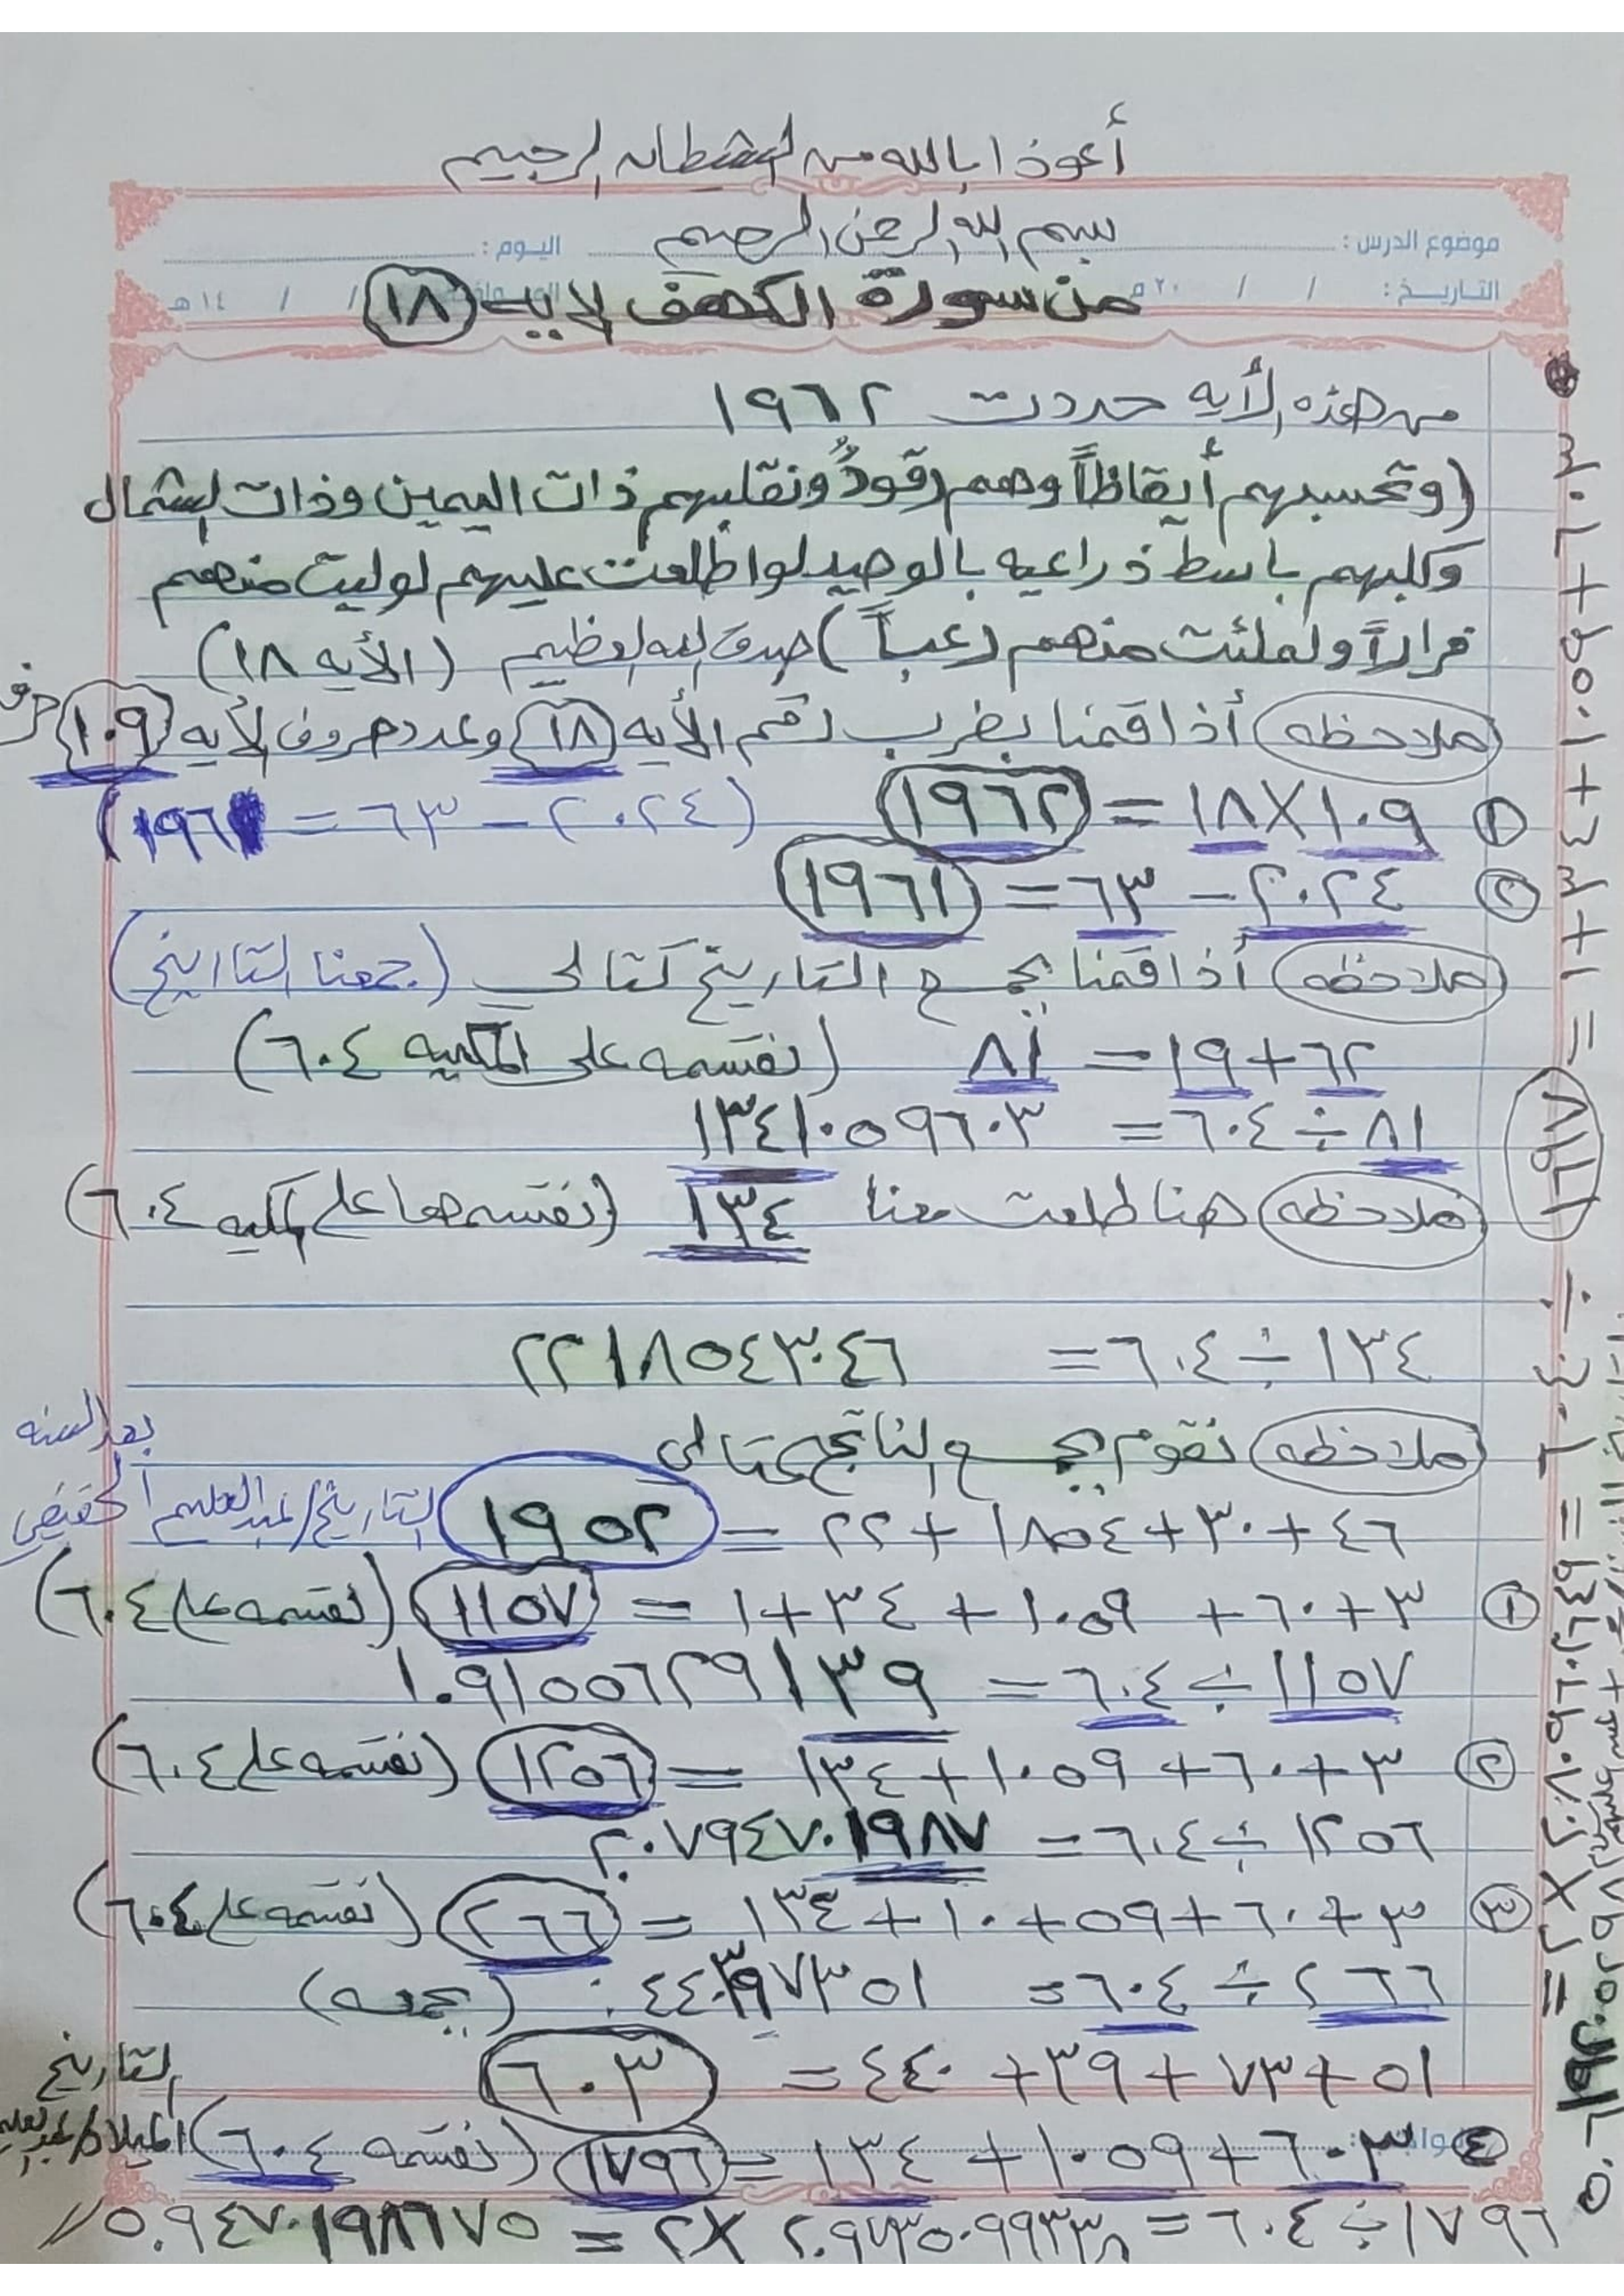 أعوذ ا بالله من الشيطان الرجيم
بسم الله الرحمن الرحيم
موضوع الدرس : اليوم :
التاريخ : / / ٢٠ م / / ١٤ هـ
من سورة الكهف لايه (١٨)
من هذه الأيه حددت ١٩٦٢
(وتحسبهم أيقاظاً وهم رقودٌ ونقلبهم ذات اليمين وذات الشمال
وكلبهم باسط ذراعيه بالوصيد لواطلعت عليهم لوليت منهم
فراراً ولملئت منهم رعباً) صدق الله العظيم (الأيه ١٨)
ملاحظه أذا قمنا بضرب رقم الأيه (١٨) وعدد حروف الأيه (١٠٩) حرف
١ ١٠٩×١٨ = ١٩٦٢ (٢٠٢٤ - ٦٣ = ١٩٦١)
٢ ٢٠٢٤ - ٦٣ = ١٩٦١
ملاحظه أذا قمنا بجمع التاريخ كتالي (جمعنا التااريخ)
٦٢+١٩ = ٨١ (نقسمه على المكيه ٦٠٤)
٨١÷٦٠٤ = ١٣٤١٠٥٩٦٠٣
ملاحظه هنا طلعت معنا ١٣٤ (نقسمها على المكيه ٦٠٤)
١٣٤÷٦٠٤ = ٢٢١٨٥٤٣٠٤٦
ملاحظه نقوم بجمع الناتج كتالي
بعد السنه
٤٦+٣٠+١٨٥٤+٢٢ = ١٩٥٢ التاريخ/عبد العليم الحقيقي
١ ٣+٦٠+١٠٥٩+٣٤+١ = ١١٥٧ (نقسمه على ٦٠٤)
١١٥٧÷٦٠٤ = ١٠٩١٥٥٦٢٩١٣٩
٢ ٣+٦٠+١٠٥٩+١٣٤ = ١٢٥٦ (نقسمه على ٦٠٤)
١٢٥٦÷٦٠٤ = ٢٠٧٩٤٧٠١٩٨٧
٣ ٣+٦٠+٥٩+١٠+١٣٤ = ٢٦٦ (نقسمه على ٦٠٤)
٢٦٦÷٦٠٤ = ٤٤٠٣٩٧٣٥١ (بجمعه)
٥١+٧٣+٣٩+٤٤٠ = ٦٠٣
التاريخ
٤ ٦٠٣+١٠٥٩+١٣٤ = ١٧٩٦ (نقسمه ٦٠٤) الميلاد/
١٧٩٦÷٦٠٤ = ٢.٩٧٣٥٠٩٩٣٣٨ ×٢ = ٥.٩٤٧٠١٩٨٦٧٥